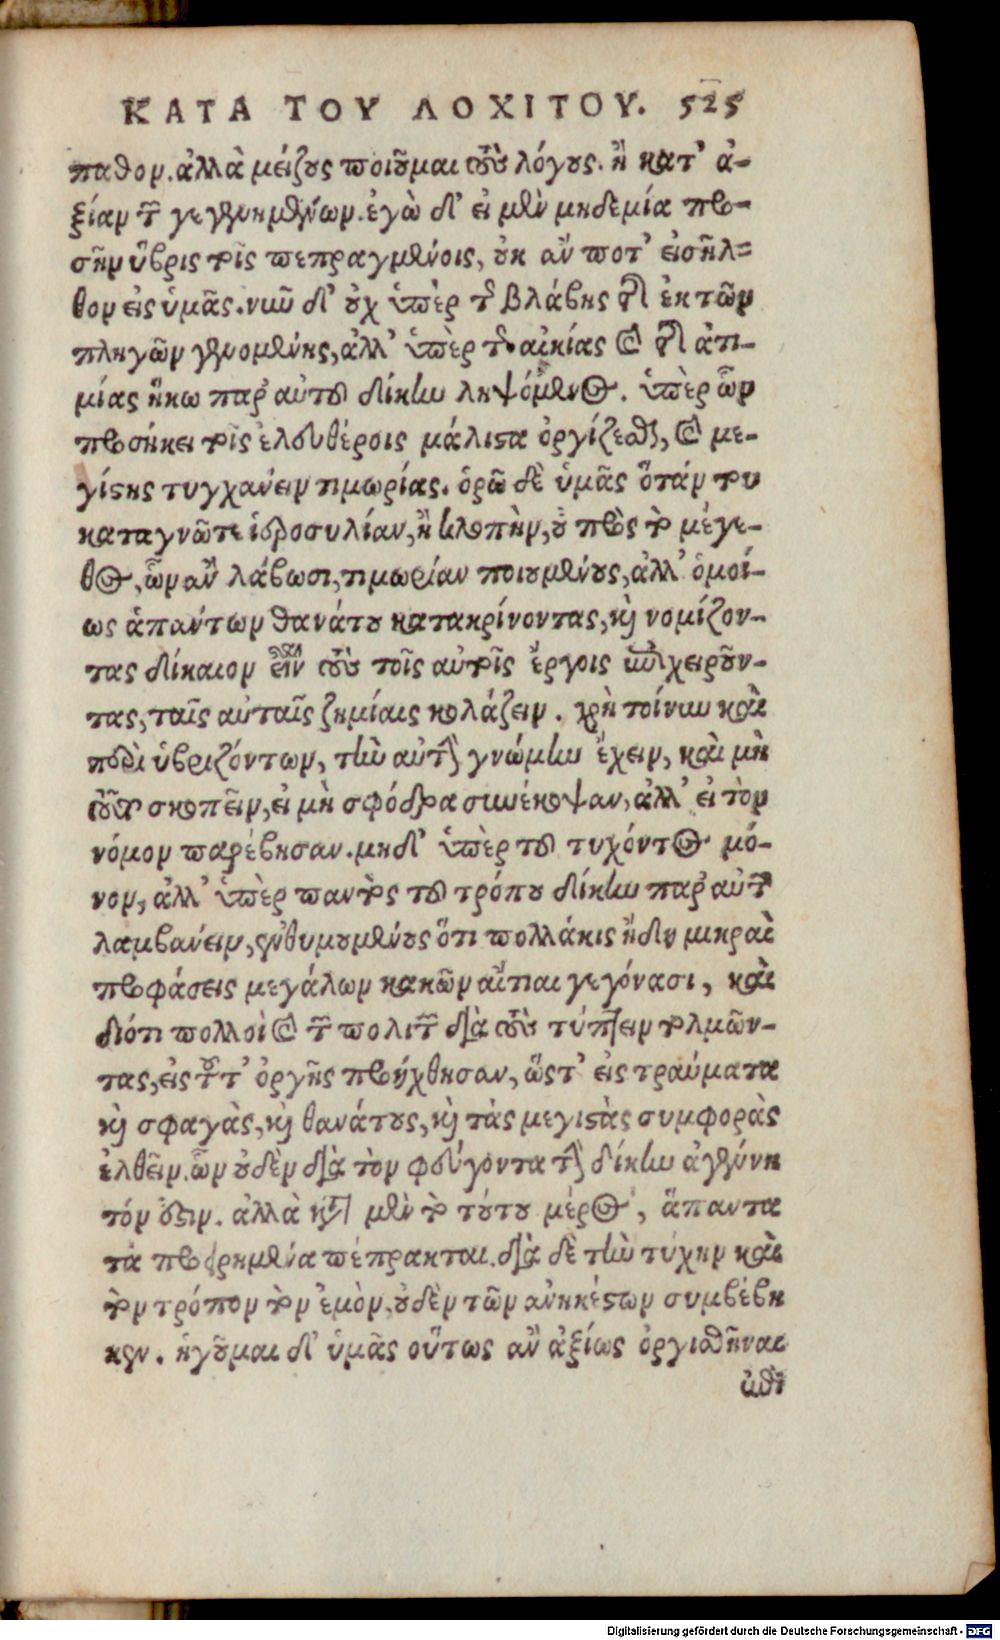 ΚΑΤΑ ΤΟΥ ΛΟΧΙΤΟΥ. 525
παθον. ἀλλὰ μείζους ποιοῦμαι τοὺς λόγους. ἢ κατ’ ἀ-
ξίαν τῶν γεγενημένων. ἐγὼ δ’ εἰ μὲν μηδεμία προ-
σῆν ὕβρις τοῖς πεπραγμένοις, οὐκ ἄν ποτ’ εἰσῆλ-
θον εἰς ὑμᾶς. νυνὶ δ’ οὐχ ὑπὲρ τῆς βλάβης τῆς ἐκ τῶν
πληγῶν γενομένης, ἀλλ’ ὑπὲρ τῆς αἰκίας καὶ τῆς ἀτι-
μίας ἥκω παρ’ αὐτοῦ δίκην ληψόμενος. ὑπὲρ ὧν
προσήκει τοῖς ἐλευθέροις μάλιστα ὀργίζεσθαι, καὶ με-
γίστης τυγχάνειν τιμωρίας. ὁρῶ δὲ ὑμᾶς ὅτάν του
καταγνῶτε ἱεροσυλίαν, ἢ κλοπὴν, οὐ πρὸς τὸ μέγε-
θος, ὧν ἂν λάβωσι, τιμωρίαν ποιουμένους, ἀλλ’ ὁμοί-
ως ἁπάντων θανάτου κατακρίνοντας, καὶ νομίζον-
τας δίκαιον εἶναι τοὺς τοῖς αὐτοῖς ἔργοις ἐπιχειροῦν-
τας, ταῖς αὐταῖς ζημίαις κολάζειν. χρὴ τοίνυν καὶ
περὶ ὑβριζόντων, τὴν αὐτὴν γνώμην ἔχειν, καὶ μὴ
τοῦτο σκοπεῖν, εἰ μὴ σφόδρα συνέκοψαν, ἀλλ’ εἰ τὸν
νόμον παρέβησαν. μηδ’ ὑπὲρ τοῦ τυχόντος μό-
νον, ἀλλ’ ὑπὲρ παντὸς τοῦ τρόπου δίκην παρ’ αὐτῶν
λαμβάνειν, ἐνθυμουμένους ὅτι πολλάκις ἤδη μικραὶ
προφάσεις μεγάλων κακῶν αἴτιαι γεγόνασι, καὶ
διότι πολλοὶ καὶ τῶν πολιτῶν διὰ τοὺς τύπτειν τολμῶν-
τας, εἰς τοῦτ’ ὀργῆς προήχθησαν, ὥστ’ εἰς τραύματα
καὶ σφαγὰς, καὶ θανάτους, καὶ τὰς μεγίστας συμφορὰς
ἐλθεῖν. ὧν οὐδὲν διὰ τὸν φεύγοντα τὴν δίκην ἀγένη
τόν ἐστιν. ἀλλὰ κατὰ μὲν τὸ τούτου μέρος, ἅπαντα
τὰ προειρημένα πέπρακται. διὰ δὲ τὴν τύχην καὶ
τὸν τρόπον τὸν ἐμὸν, οὐδὲν τῶν ἀνηκέστων συμβέβη
κεν. ἡγοῦμαι δ’ ὑμᾶς οὕτως ἂν ἀξίως ὀργισθῆναι
Digitalisierung gefördert durch die Deutsche Forschungsgemeinschaft - DFG